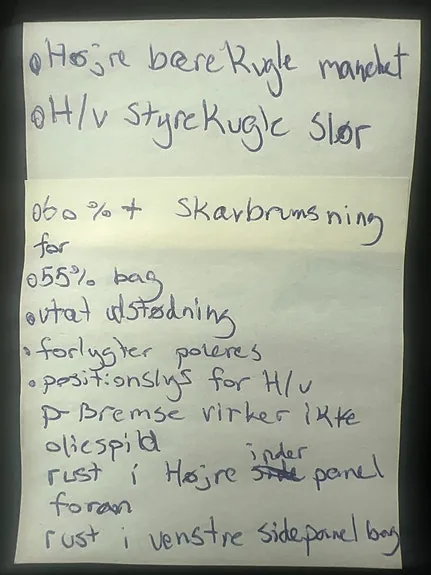 Højre bærekugle manchet
H/v styrekugle slør
60%+ skævbremsning
for
55% bag
utæt udstødning
forlygter poleres
positionslys for H/v
P-Bremse virker ikke
oliespild
inder
rust i Højre panel
foran
rust i venstre sidepanel bag